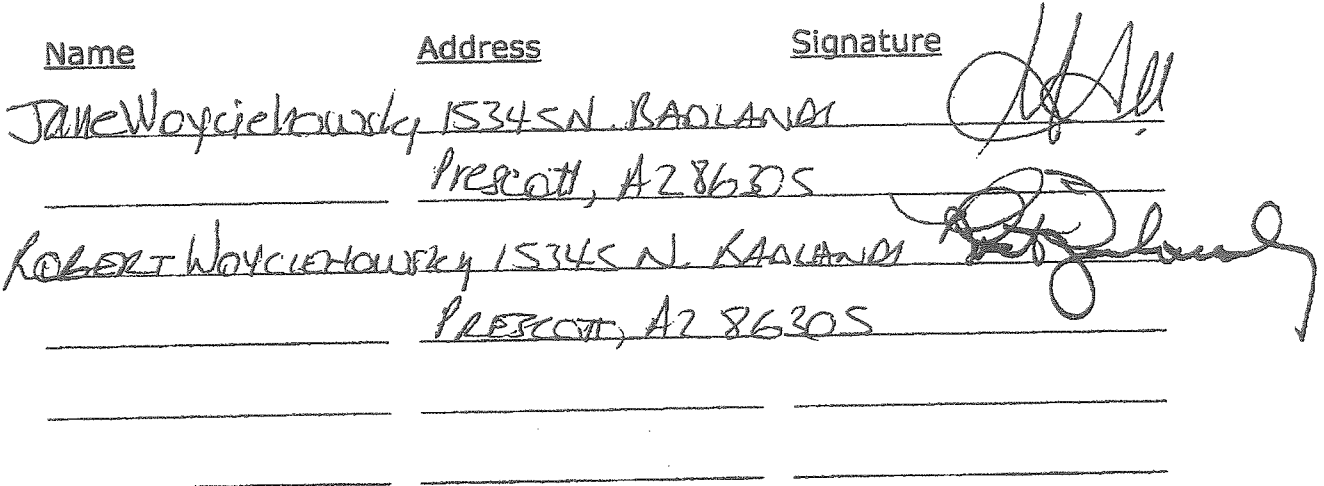 Name Address Signature
Jane Woyciehowsky 15345 N. BADLANDS
Prescott, AZ 86305
ROBERT WOYCIEHOWSKY 15345 N. BADLANDS
PRESCOTT, AZ 86305